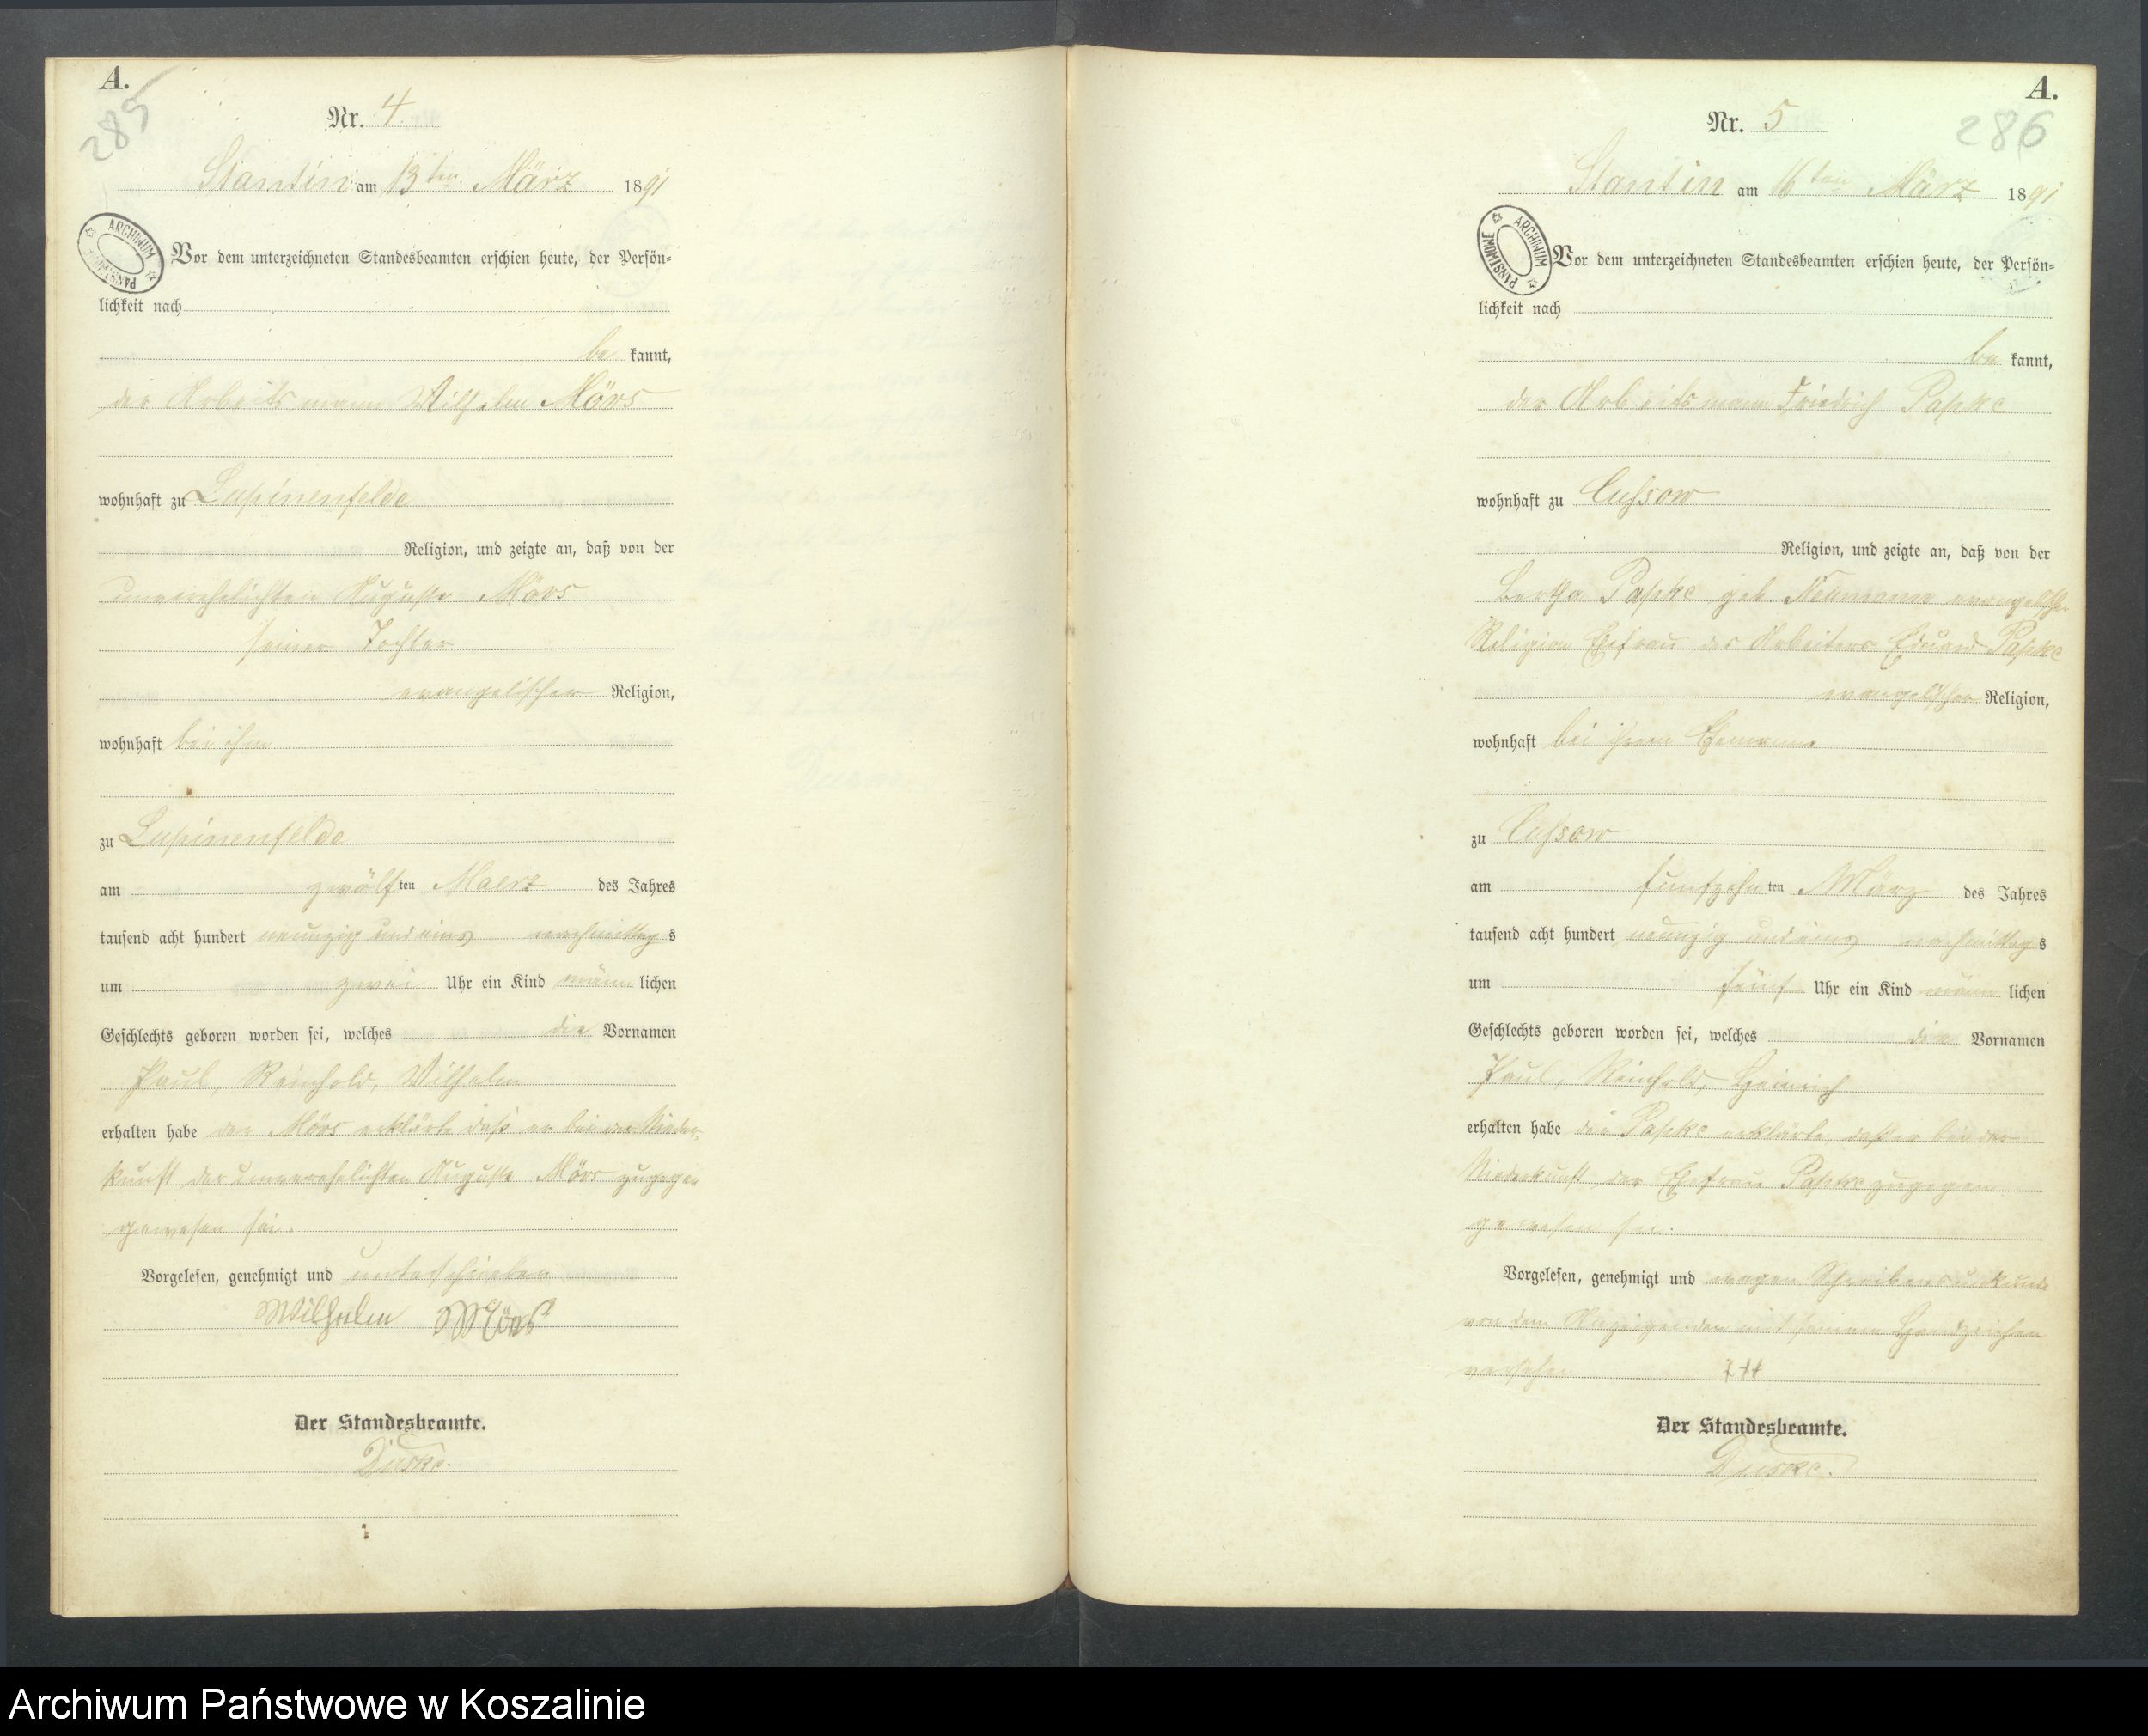 A.
285
Nr. 4
Stantin am 13ten März 1891
ARCHIWUM PAŃSTWOWE
Vor dem unterzeichneten Standesbeamten erschien heute, der Persön-
lichkeit nach
be kannt,
der Arbeitsmann Wilhelm Mörs
wohnhaft zu Lupinenfelde
Religion, und zeigte an, daß von der
unverehelichten Auguste Mörs
seiner Tochter
evangelischer Religion,
wohnhaft bei ihm
zu Lupinenfelde
am zwölf ten Maerz des Jahres
tausend acht hundert neunzig und eins nachmittag s
um zwei Uhr ein Kind männ lichen
Geschlechts geboren worden sei, welches die Vornamen
Paul, Reinhold, Wilhelm
erhalten habe der Mörs erklärte daß er bei der Nieder-
kunft der unverehelichten Auguste Mörs zugegen
gewesen sei.
Vorgelesen, genehmigt und unterschrieben
Wilhelm Mörs
Der Standesbeamte.
A.
286
Nr. 5
Stantin am 16ten März 1891
ARCHIWUM PAŃSTWOWE
Vor dem unterzeichneten Standesbeamten erschien heute, der Persön-
lichkeit nach
be kannt,
der Arbeitsmann Friedrich Papke
wohnhaft zu Cussow
Religion, und zeigte an, daß von der
Bertha Papke geb. Neumann evangelischer
Religion Ehefrau des Arbeiters Eduard Papke
evangelischer Religion,
wohnhaft bei ihrem Ehemann
zu Cussow
am funfzehn ten März des Jahres
tausend acht hundert neunzig und eins nachmittag s
um fünf Uhr ein Kind männ lichen
Geschlechts geboren worden sei, welches die Vornamen
Paul, Reinhold, Heinrich
erhalten habe der Papke erklärte, daß er bei der
Niederkunft der Ehefrau Papke zugegen
gewesen sei.
Vorgelesen, genehmigt und wegen Schreibensunkunde
von dem Anzeigenden mit seinem Handzeichen
versehen +++
Der Standesbeamte.
Archiwum Państwowe w Koszalinie